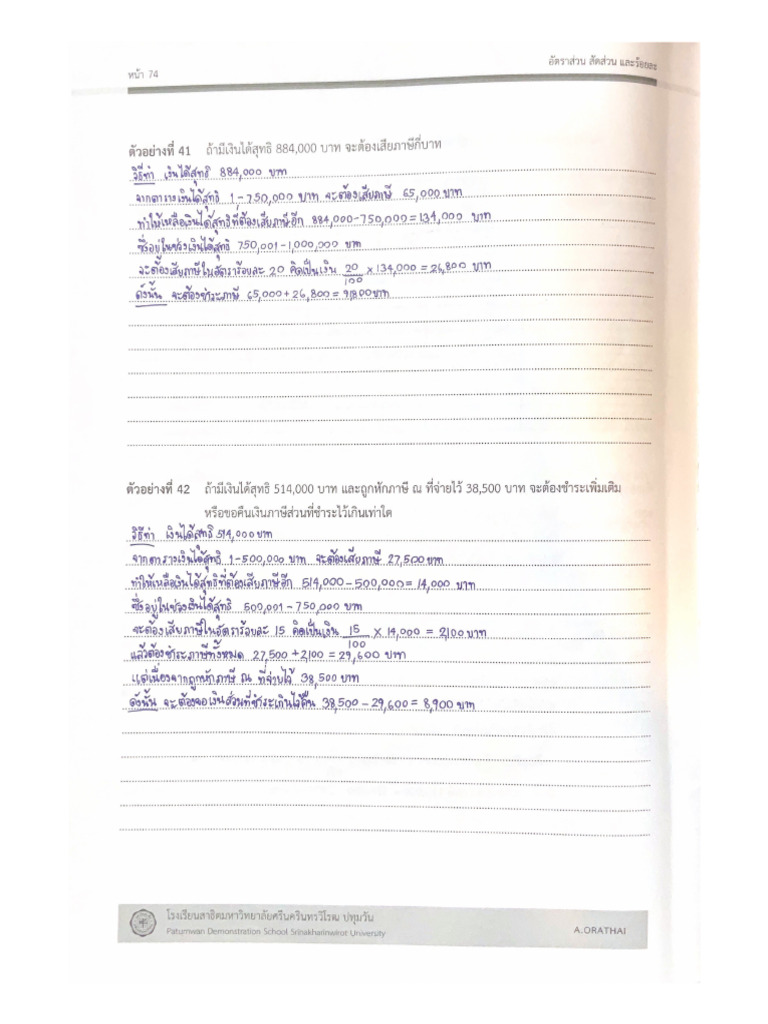 หน้า 74
อัตราส่วน สัดส่วน และร้อยละ
ตัวอย่างที่ 41 ถ้ามีเงินได้สุทธิ 884,000 บาท จะต้องเสียภาษีกี่บาท
วิธีทำ เงินได้สุทธิ 884,000 บาท
จากตารางเงินได้สุทธิ 1-750,000 บาท จะต้องเสียภาษี 65,000 บาท
ทำให้เหลือเงินได้สุทธิที่ต้องเสียภาษีอีก 884,000-750,000=134,000 บาท
ซึ่งอยู่ในช่วงเงินได้สุทธิ 750,001-1,000,000 บาท
จะต้องเสียภาษีในอัตราร้อยละ 20 คิดเป็นเงิน 20/100 x 134,000 = 26,800 บาท
ดังนั้น จะต้องชำระภาษี 65,000+26,800 = 91,800 บาท
ตัวอย่างที่ 42 ถ้ามีเงินได้สุทธิ 514,000 บาท และถูกหักภาษี ณ ที่จ่ายไว้ 38,500 บาท จะต้องชำระเพิ่มเติม
หรือขอคืนเงินภาษีส่วนที่ชำระไว้เกินเท่าใด
วิธีทำ เงินได้สุทธิ 514,000 บาท
จากตารางเงินได้สุทธิ 1-500,000 บาท จะต้องเสียภาษี 27,500 บาท
ทำให้เหลือเงินได้สุทธิที่ต้องเสียภาษีอีก 514,000-500,000= 14,000 บาท
ซึ่งอยู่ในช่วงเงินได้สุทธิ 500,001-750,000 บาท
จะต้องเสียภาษีในอัตราร้อยละ 15 คิดเป็นเงิน 15/100 x 14,000 = 2,100 บาท
แล้วต้องชำระภาษีทั้งหมด 27,500+2,100 = 29,600 บาท
แต่เนื่องจากถูกหักภาษี ณ ที่จ่ายไว้ 38,500 บาท
ดังนั้น จะต้องขอเงินส่วนที่ชำระเกินไว้คืน 38,500 - 29,600 = 8,900 บาท
โรงเรียนสาธิตมหาวิทยาลัยศรีนครินทรวิโรฒ ปทุมวัน
Patumwan Demonstration School Srinakharinwirot University
A.ORATHAI